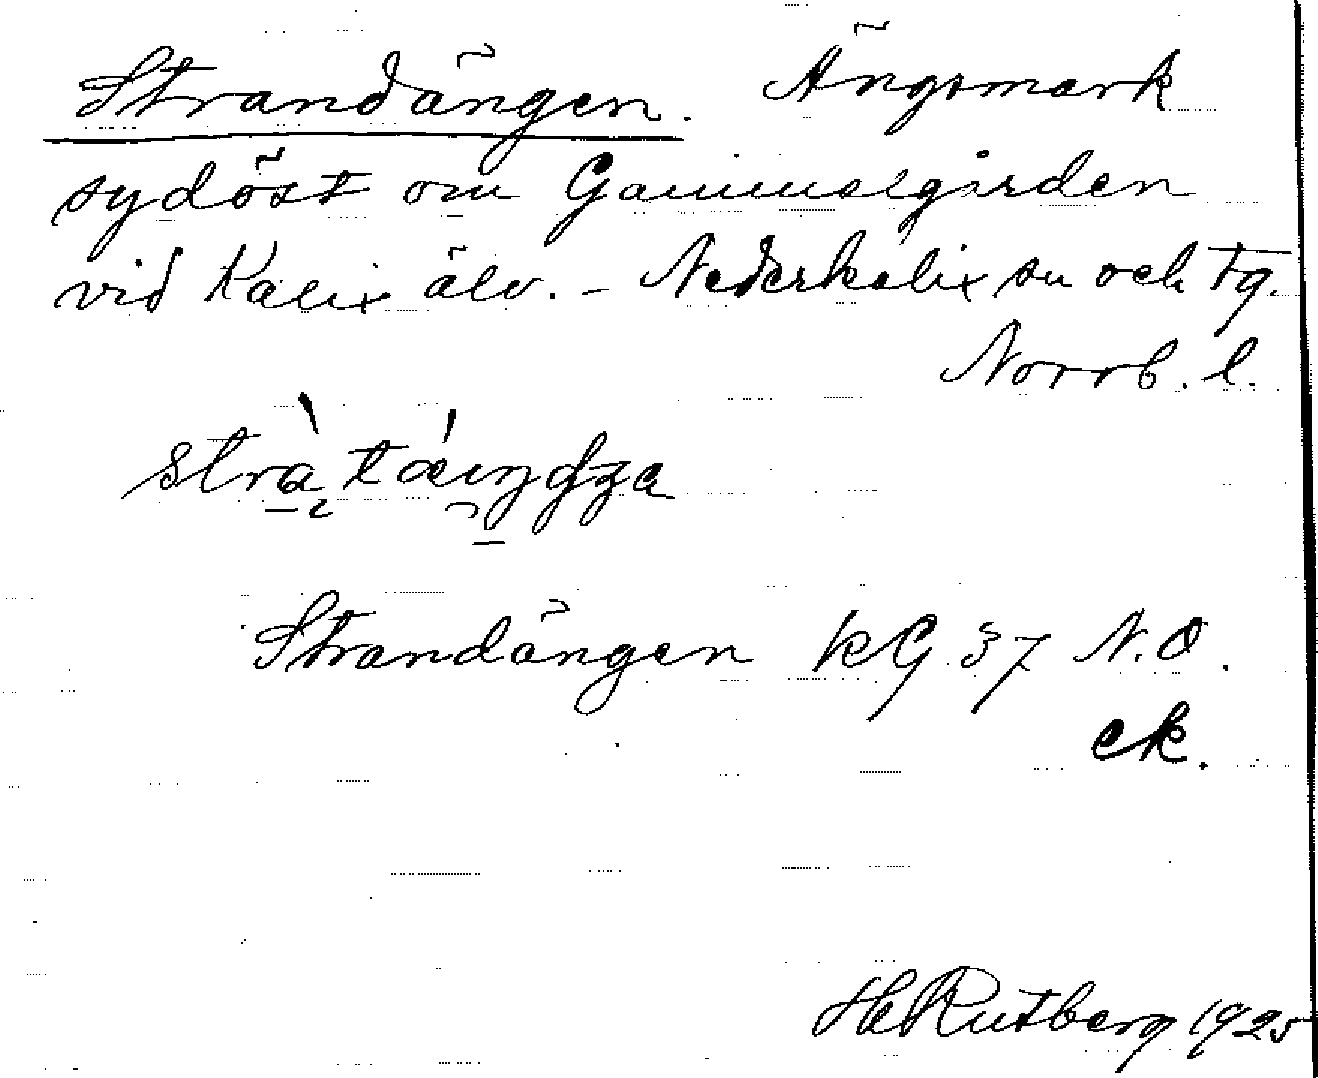 Strandängen. Ängsmark
sydöst om Gammelgården
vid Kalix älv. - Nederkalix sn och tg.
Norrb. l.
Strandängen KG 37 N.O.
ck.
H Rutberg 1925